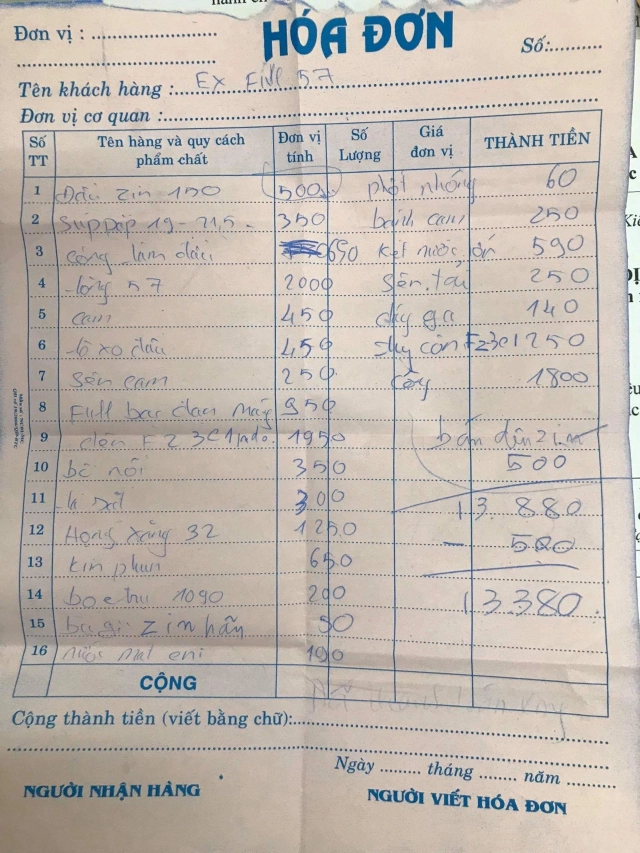 Đơn vị : ........................
HÓA ĐƠN
Số:..........
Tên khách hàng : EX Fill 57
Đơn vị cơ quan :
Số TT Tên hàng và quy cách phẩm chất Đơn vị tính Số Lượng Giá đơn vị THÀNH TIỀN
1 Đầu zin 150 500 phột nhớng 60
2 suppap 19-21,5 350 bánh cam 250
3 công làm đầu 650 két nước ốn 590
4 lòng 57 2000 sên tải 250
5 cam 450 dây ga 140
6 lò xo đầu 450 dây côn Fz3c1 250
7 sên cam 250 công 1800
8 Full bạc đạn máy 950
9 dên FZ 3C1 indo. 1950 bán dên zin
10 bố nồi 350 500
11 lá sắt 300 13.880
12 Họng xăng 32 1250 - 500
13 kim phun 650 13380
14 boetru 1090 200
15 bugi zin hãy 90
16 nước mát eni 190
CỘNG
Cộng thành tiền (viết bằng chữ):
Ngày ......... tháng ........ năm .........
NGƯỜI NHẬN HÀNG NGƯỜI VIẾT HÓA ĐƠN